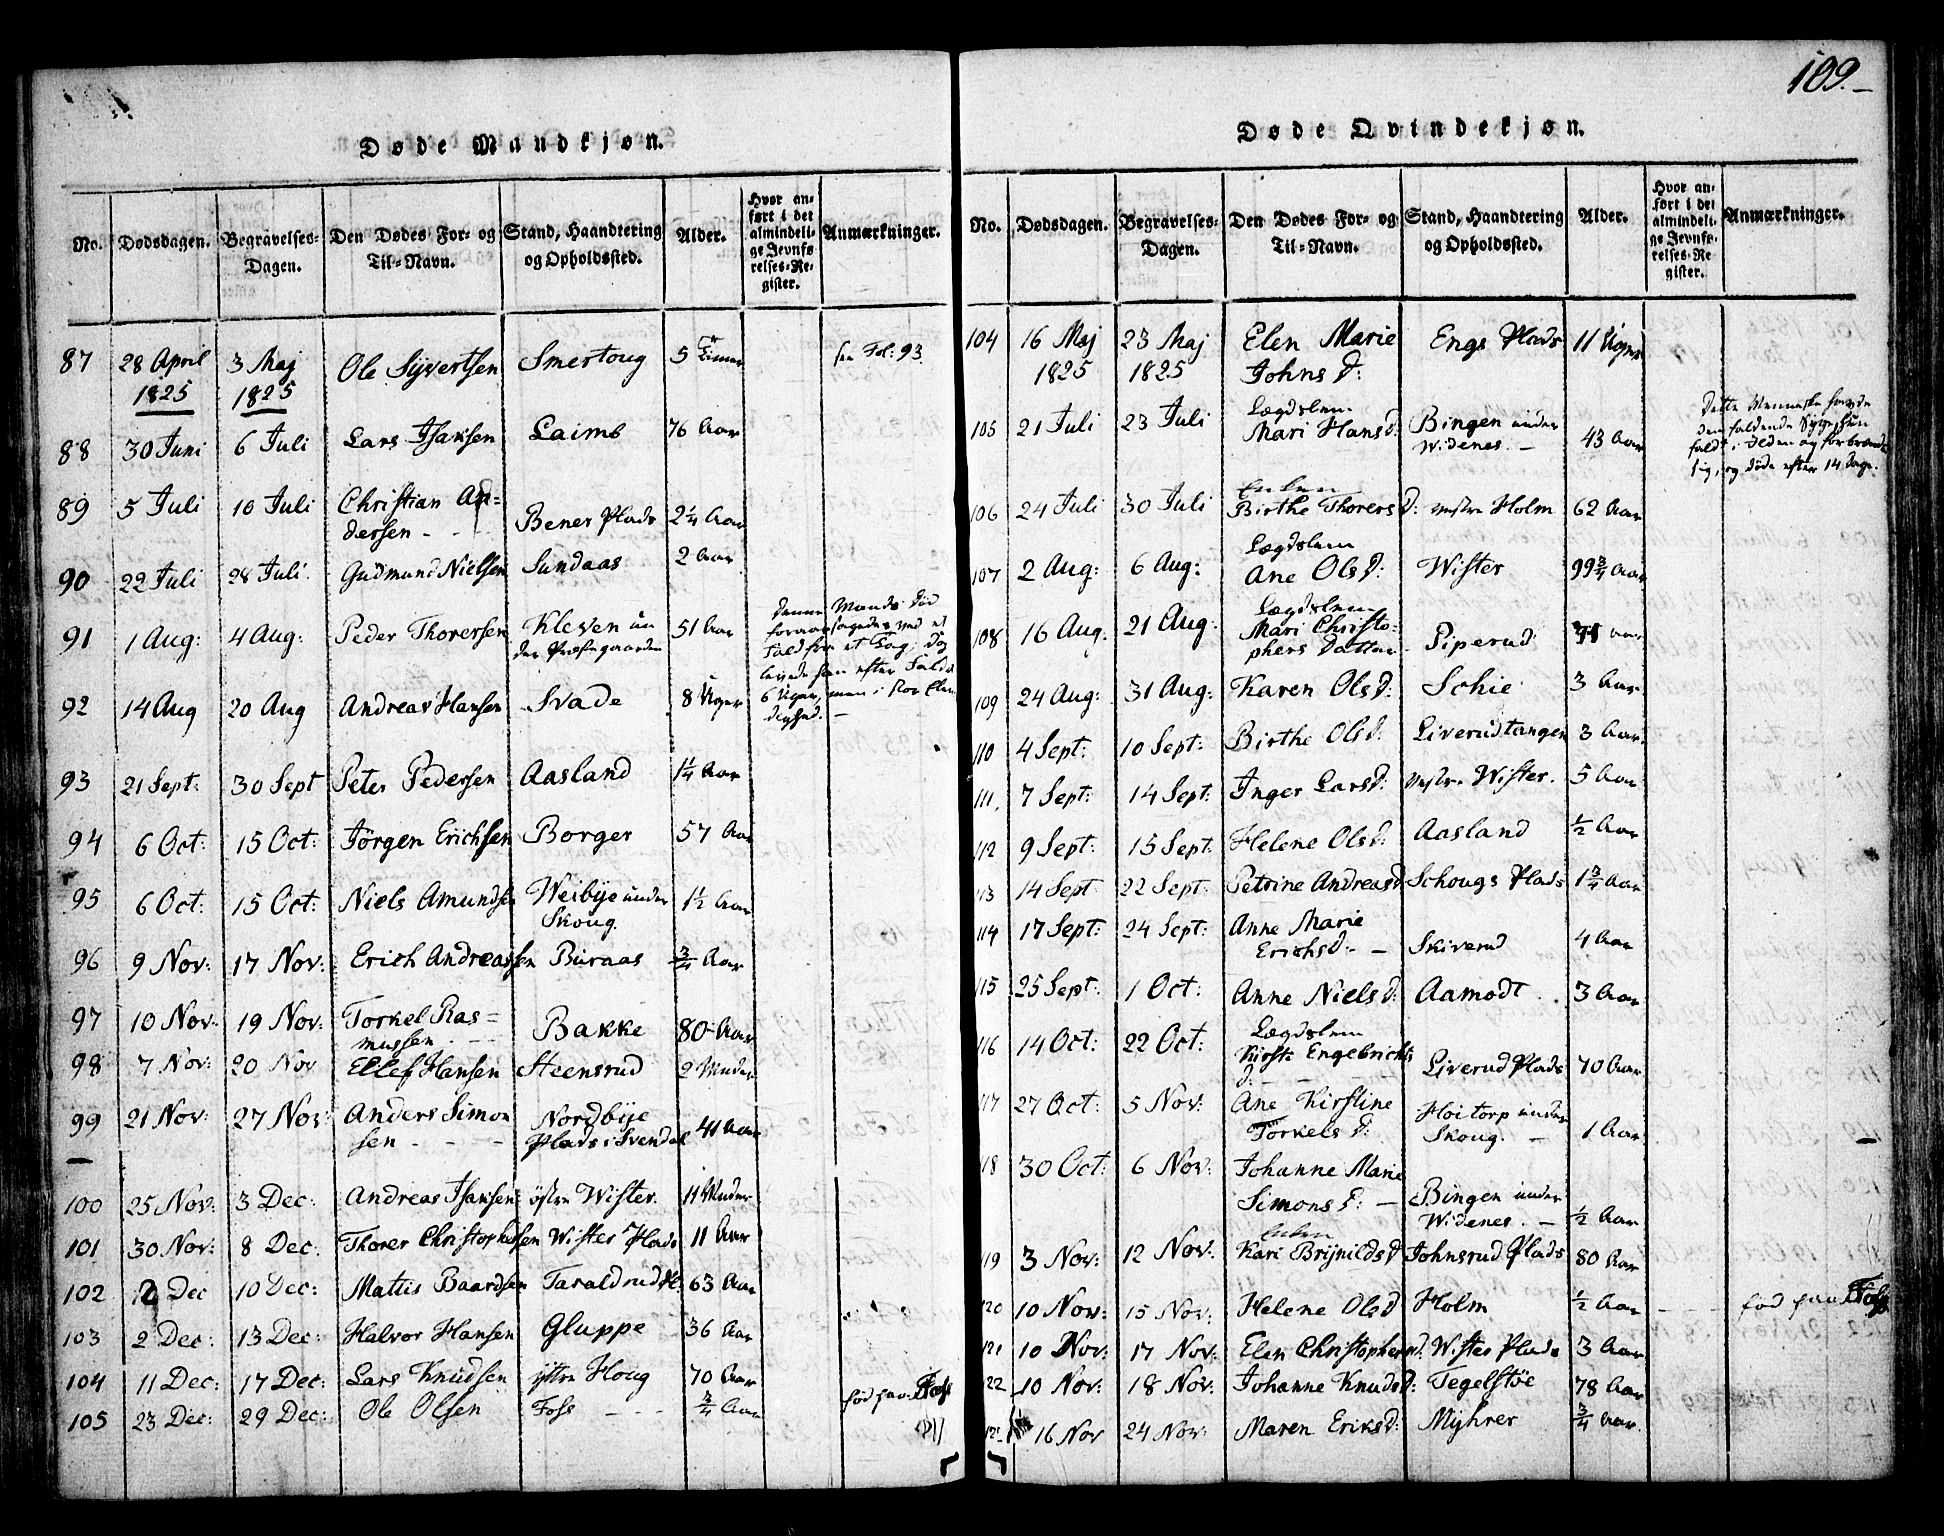 109.
Døde Mandkjøn.
No. Dødsdagen. Begravelses-Dagen. Den Dødes For- og Til-Navn. Stand, Haandtering og Opholdssted. Alder. Hvor anført i det almindelige Jevnførelses-Register. Anmærkninger.
87 28 April 1825 3 Maj 1825 Ole Syvertsen Smertoug 5 see Fol: 93.
88 30 Juni 6 Juli Lars Isaksen Laimb 76 Aar
89 5 Juli 10 Juli Christian An=
dersen - Bener Plads 2 1/4 Aar
90 22 Juli 28 Juli. Gudmund Nielsen Sundaas 2 Aar
91 1 Aug: 4 Aug: Peder Thorersen Kleven un
der Præstegaarden 51 Aar
Denne Mands Død
foraarsagedes ved et
Fald fra et Tag; dog
levede han efter Faldet
6 Uger, men i stor Elen
dighed. -
92 14 Aug 20 Aug Andreas Hansen Svade 8 Uger
93 21 Sept: 30 Sept Peter Pedersen Aasland 1 1/4 Aar
94 6 Oct: 15 Oct: Jörgen Erichsen Borger 57 Aar
95 6 Oct: 15 Oct: Niels Amundsen Weibye under
Skoug. 1 1/2 Aar
96 9 Nov: 17 Nov: Erich Andreassen Buraas 3/4 Aar
97 10 Nov: 19 Nov: Torkel Ras=
mussen. - Bakke 80 Aar
98 7 Nov: 20 Nov Ellef Hansen Steensrud 2 Mnder
99 21 Nov: 27 Nov: Anders Simon
sen - - - Nordbÿe
Plads i Svendal 41 Aar
100 25 Nov: 3 Dec: Andreas Isaksen östre Wister. 11 Mnder
101 30 Nov: 8 Dec: Thorer Christophersen Wister Plads 11 Aar
102 2 Dec 10 Dec: Mattis Baardsen Taraldrud 63 Aar
103 2 Dec: 13 Dec: Halvor Hansen Gluppe 36 Aar
104 11 Dec: 17 Dec: Lars Knudsen ÿttre Houg 70 Aar
105 23 Dec: 29 Dec: Ole Olsen Foss - - - 3/4 Aar fød paa Foss
Døde Qvindekjøn.
No. Dødsdagen. Begravelses-Dagen. Den Dødes For- og Til-Navn. Stand, Haandtering og Opholdssted. Alder. Hvor anført i det almindelige Jevnførelses-Register. Anmærkninger.
104 16 Maj 1825 23 Maj 1825 Elen Marie
Johns D: Engs Plads 11 Uger
105 21 Juli 23 Juli Lægdslem
Mari Hans D: Bingen under
Widenes. - 43 Aar
Dette Menneske havde
den faldende Syge, hun
faldt i Ilden og forbrændte
sig, og døde efter 14 Dage.
106 24 Juli 30 Juli Enken
Birthe Thorers D: vestre Holm 62 Aar
107 2 Aug: 6 Aug: Lægdslem
Ane Ols D: Wister 99 3/4 Aar
108 16 Aug. 21 Aug: Lægdslem
Mari Christo-
phers Datter Piperud Aar
109 24 Aug: 31 Aug: Karen Ols D: Schie 3 Aar
110 4 Sept: 10 Sept: Birthe Ols D: Liverudtangen 3 Aar
111. 7 Sept: 14 Sept: Inger Lars D: vestre Wister. 5 Aar
112 9 Sept: 15 Sept: Helene Ols D: Aasland 1/2 Aar
113 14 Sept 22 Sept: Petrine Andreas D Schougs Plads 1 3/4 Aar
114 17 Sept: 24 Sept: Anne Marie
Erichs D: - Skiverud 4 Aar
115 25 Sept. 1 Oct: Anne Niels D: Aamodt . 3 Aar
116 14 Oct: 22 Oct: Lægdslem
Kirsti Engebrichts
D: - Liverud Plads 70 Aar
117 27 Oct: 5 Nov: Ane Kirstine
Torkels D: Hoitorp under
Skoug. - 1 Aar
118 30 Oct: 6 Nov: Johanne Marie
Simons D: - Bingen under
Widenes. - 1/2 Aar
119 3 Nov: 12 Nov: Enken
Kari Brÿnilds D Johnsrud Plads 80 Aar
120 10 Nov: 15 Nov: Helene Ols D Holm 1/2 Aar fød paa Foss
121 10 Nov: 17 Nov: Elen Christophers D: Wister Plads 3 Aar
122 10 Nov: 18 Nov: Johanne Knuds D: Tegelstöe 78 Aar
16 Nov 24 Nov: Maren Eriks D: Mÿhrer 3/4 Aar.